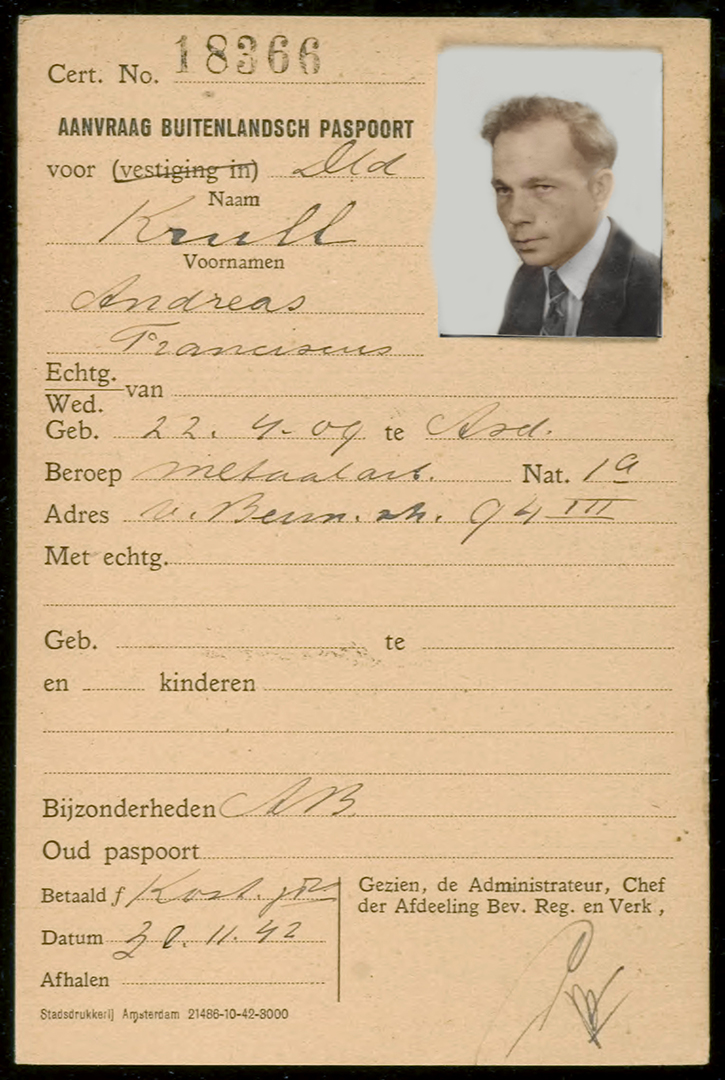 Cert. No. 18366
AANVRAAG BUITENLANDSCH PASPOORT
voor (vestiging in) Dld
Naam
Krull
Voornamen
Andreas
Franciscus
Echtg.
Wed. van
Geb. 22. 4. 09 te Asd.
Beroep metaalarb. Nat. 1a
Adres v. Beun. str. 94 III
Met echtg.
Geb. te
en kinderen
Bijzonderheden AB
Oud paspoort
Betaald f Kost.
Gezien, de Administrateur, Chef
der Afdeeling Bev. Reg. en Verk,
Datum 11. 42
Afhalen
Stadsdrukkerij Amsterdam 21486-10-42-3000